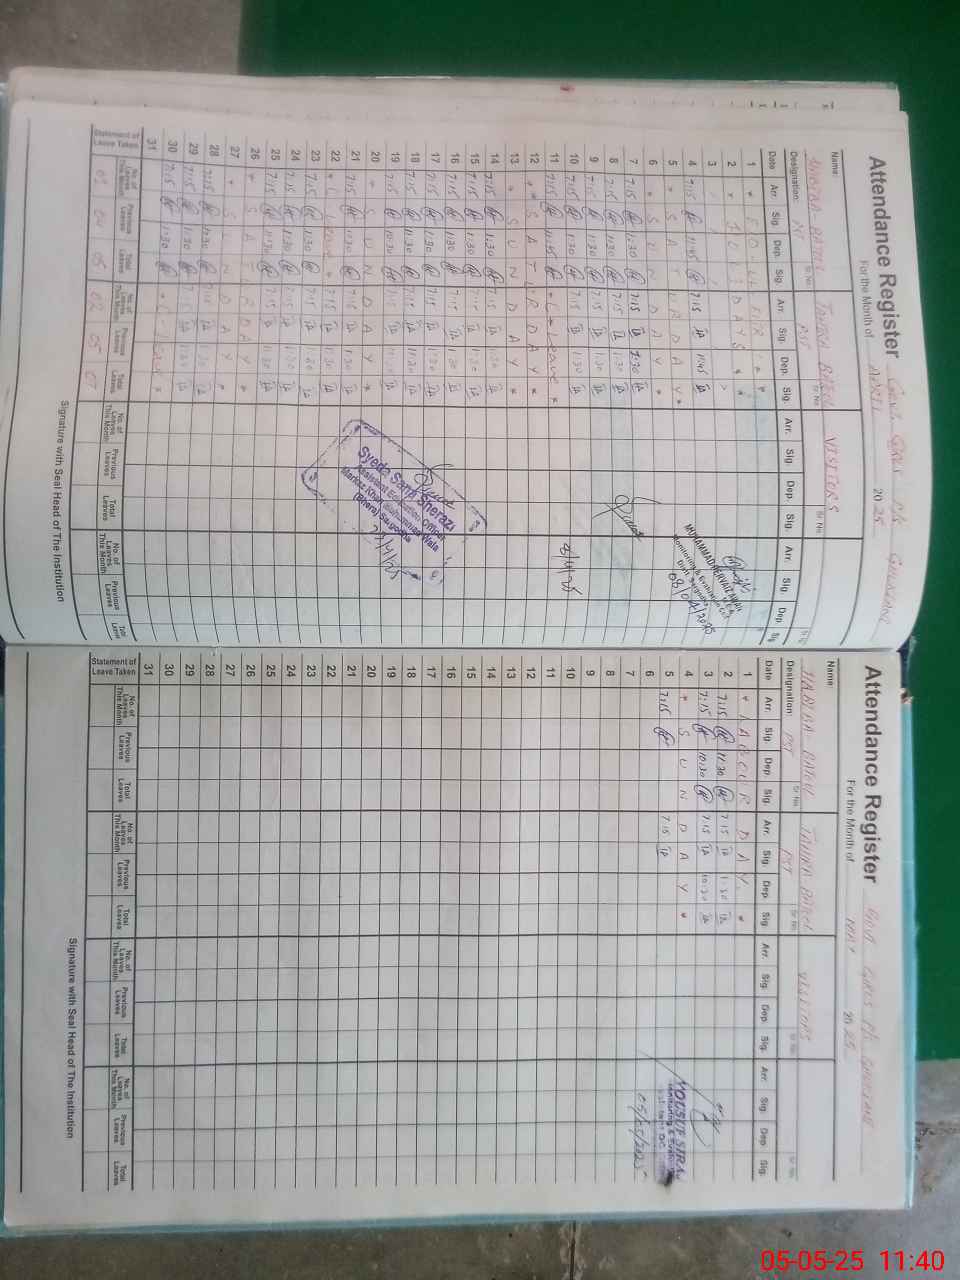 Attendance Register
Govt. Girls P/S
For the Month of APRIL 2025
Name: TAHIRA BATOOL VISITORS
Designation: PST PST
Date Arr. Sig. Dep. Sig. Arr. Sig. Dep. Sig. Arr. Sig. Dep. Sig. Arr. Sig. Dep. Sig
1 * EID-UL-FITR
2 * HOLIDAYS *
3
4 7:15 11:45 7:15 11:45
5 * SATURDAY *
6 * SUNDAY *
7 7:15 1:30 7:15 1:30
8 7:15 11:30 7:15 11:30
9 7:15 11:30 7:15 1:30
10 7:15 1:30 7:15 1:30
11 7:15 11:45 * C-Leave *
12 * SATURDAY *
13 * SUNDAY *
14 7:15 1:30 7:15 1:30
15 7:15 11:30 7:15 11:30
16 7:15 11:30 7:15 1:30
17 7:15 1:30 7:15 1:30
18 7:15 11:30 7:15 11:30
19 7:15 10:30 7:15
20 * SUNDAY *
21 7:15 1:30 7:15 1:30
22 * C-Leave * 7:15 11:30
23 7:15 11:30 7:15 1:30
24 7:15 11:30 7:15 1:30
25 7:15 11:30 7:15 11:30
26 * SATURDAY *
27 * SUNDAY *
28 7:15 11:30 7:15 1:30
29 7:15 11:30 7:15 11:30
30 7:15 11:30 * C-Leave *
31
MUHAMMAD PERVAIZ
Monitoring & Evaluation
Distt. Sargodha
08/04/2025
Syeda Sana Sherazi
Assistant Education Officer
Markaz Khan Muhammad Wala
(Bhera) Sargodha
Statement of Leave Taken
No. of Leaves This Month Previous Leaves Total Leaves No. of Leaves This Month Previous Leaves Total Leaves No. of Leaves This Month Previous Leaves Total Leaves No. of Leaves This Month Previous Leaves
01 04 05 02 05 07
Signature with Seal Head of The Institution
Attendance Register
Govt. GIRLS P/S
For the Month of MAY 2025
Name: BATOOL TAHIRA BATOOL VISITORS
Designation: PST PST
Date Arr. Sig. Dep. Sig. Arr. Sig. Dep. Sig. Arr. Sig. Dep. Sig. Arr. Sig. Dep. Sig.
1 * LABOUR DAY *
2 7:15 11:30 7:15 1:30
3 7:15 10:30 7:15 10:30
4 * SUNDAY *
5 7:15 7:15
6
7
8
9
10
11
12
13
14
15
16
17
18
19
20
21
22
23
24
25
26
27
28
29
30
31
YOUSUF SIRAJ
Monitoring &
05/05/2025
Statement of Leave Taken
No. of Leaves This Month Previous Leaves Total Leaves No. of Leaves This Month Previous Leaves Total Leaves No. of Leaves This Month Previous Leaves Total Leaves No. of Leaves This Month Previous Leaves Total Leaves
Signature with Seal Head of The Institution
05-05-25 11:40